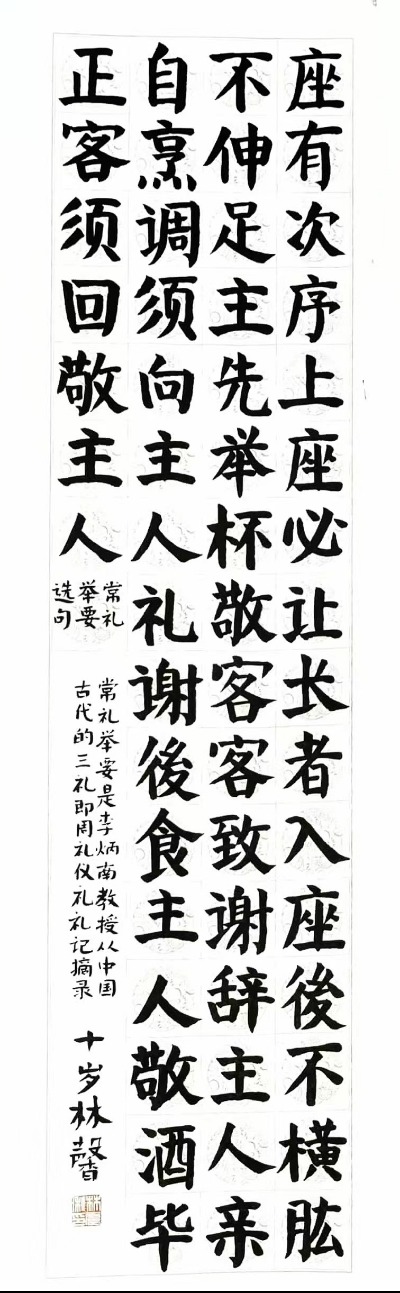 座有次序上座必让长者入座後不横肱
不伸足主先举杯敬客客致谢辞主人亲
自烹调须向主人礼谢後食主人敬酒毕
正客须回敬主人
常礼
举要
选句
常礼举要是李炳南教授从中国
古代的三礼即周礼仪礼礼记摘录
十岁林馨